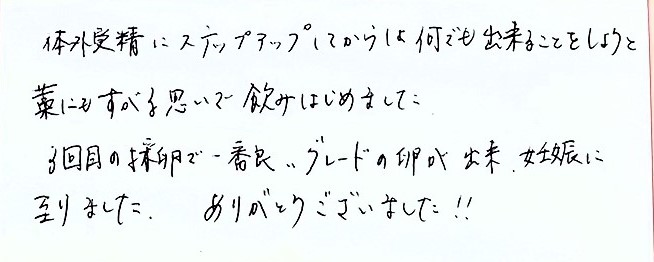 体外受精にステップアップしてからは何でも出来ることをしようと
藁にもすがる思いで飲みはじめました
3回目の採卵で一番良いグレードの卵が出来、妊娠に
至りました。 ありがとうございました!!